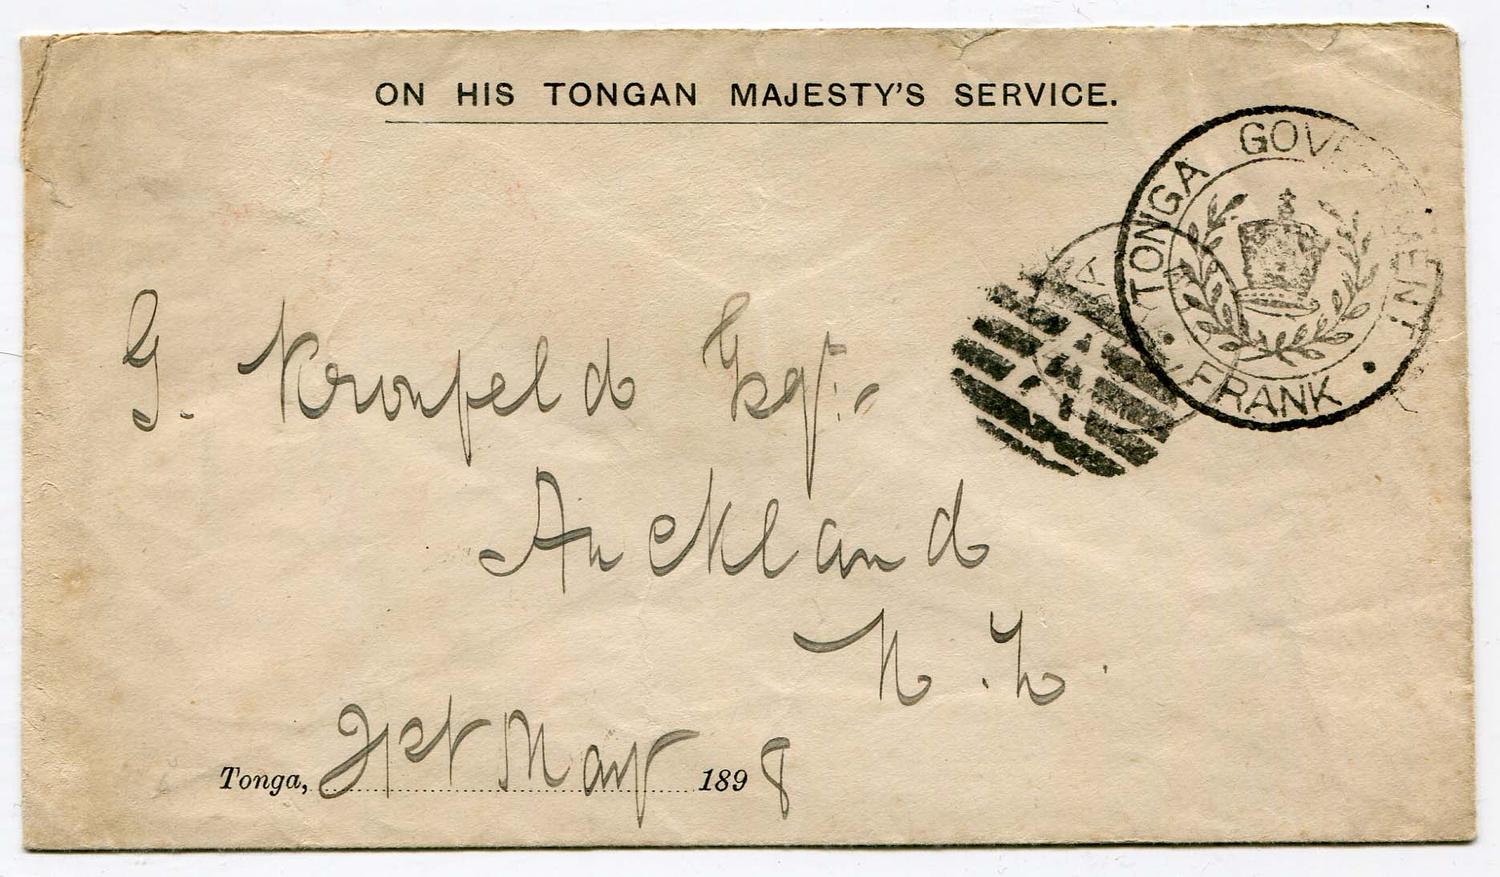 ON HIS TONGAN MAJESTY'S SERVICE.
TONGA GOVERNMENT
FRANK
G. Kronfeld Esqr.
Auckland
N.Z.
Tonga, 21st May 1898